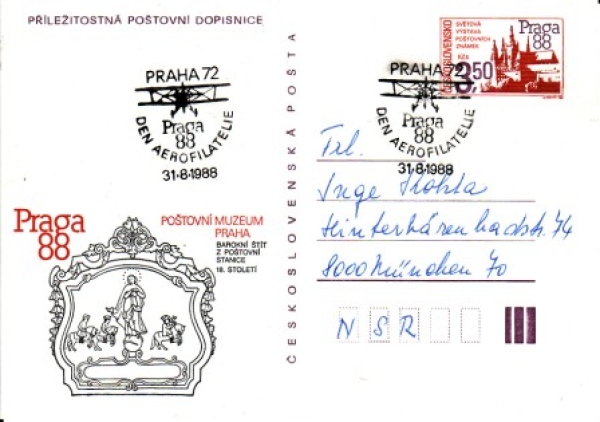 PŘÍLEŽITOSTNÁ POŠTOVNÍ DOPISNICE
PRAHA 72
Praga
88
DEN AEROFILATELIE
31-8-1988
Praga
88
POŠTOVNÍ MUZEUM
PRAHA
BAROKNÍ ŠTÍT
Z POŠTOVNÍ
STANICE
18. STOLETÍ
ČESKOSLOVENSKÁ POSTA
ČESKOSLOVENSKO
SVĚTOVÁ
VÝSTAVA
POŠTOVNÍCH
ZNÁMEK
Kčs
3,50
Praga
88
PRAHA 72
Praga
88
DEN AEROFILATELIE
31-8-1988
Inge
8000 München 70
NSR